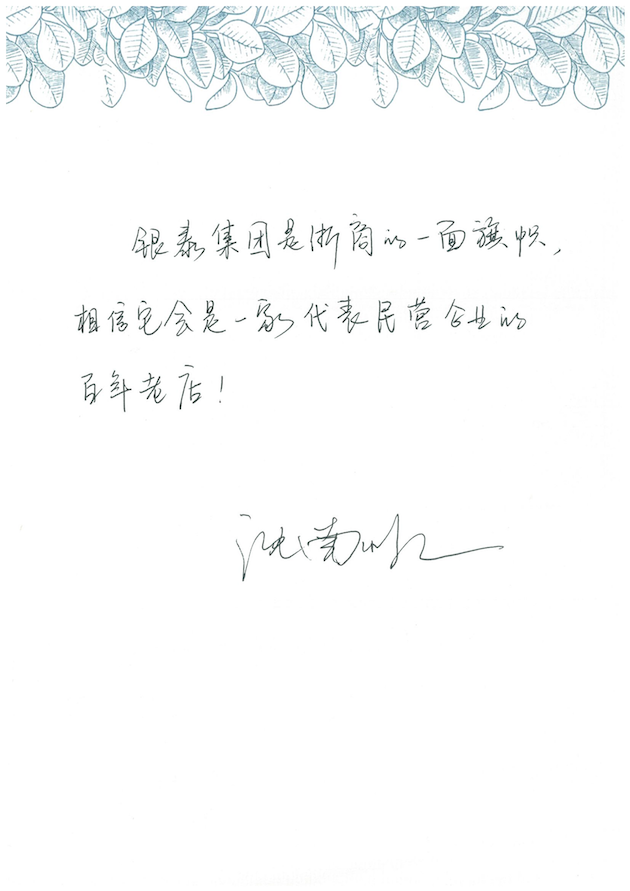 银泰集团是浙商的一面旗帜,
相信它会是一家代表民营企业的
百年老店!